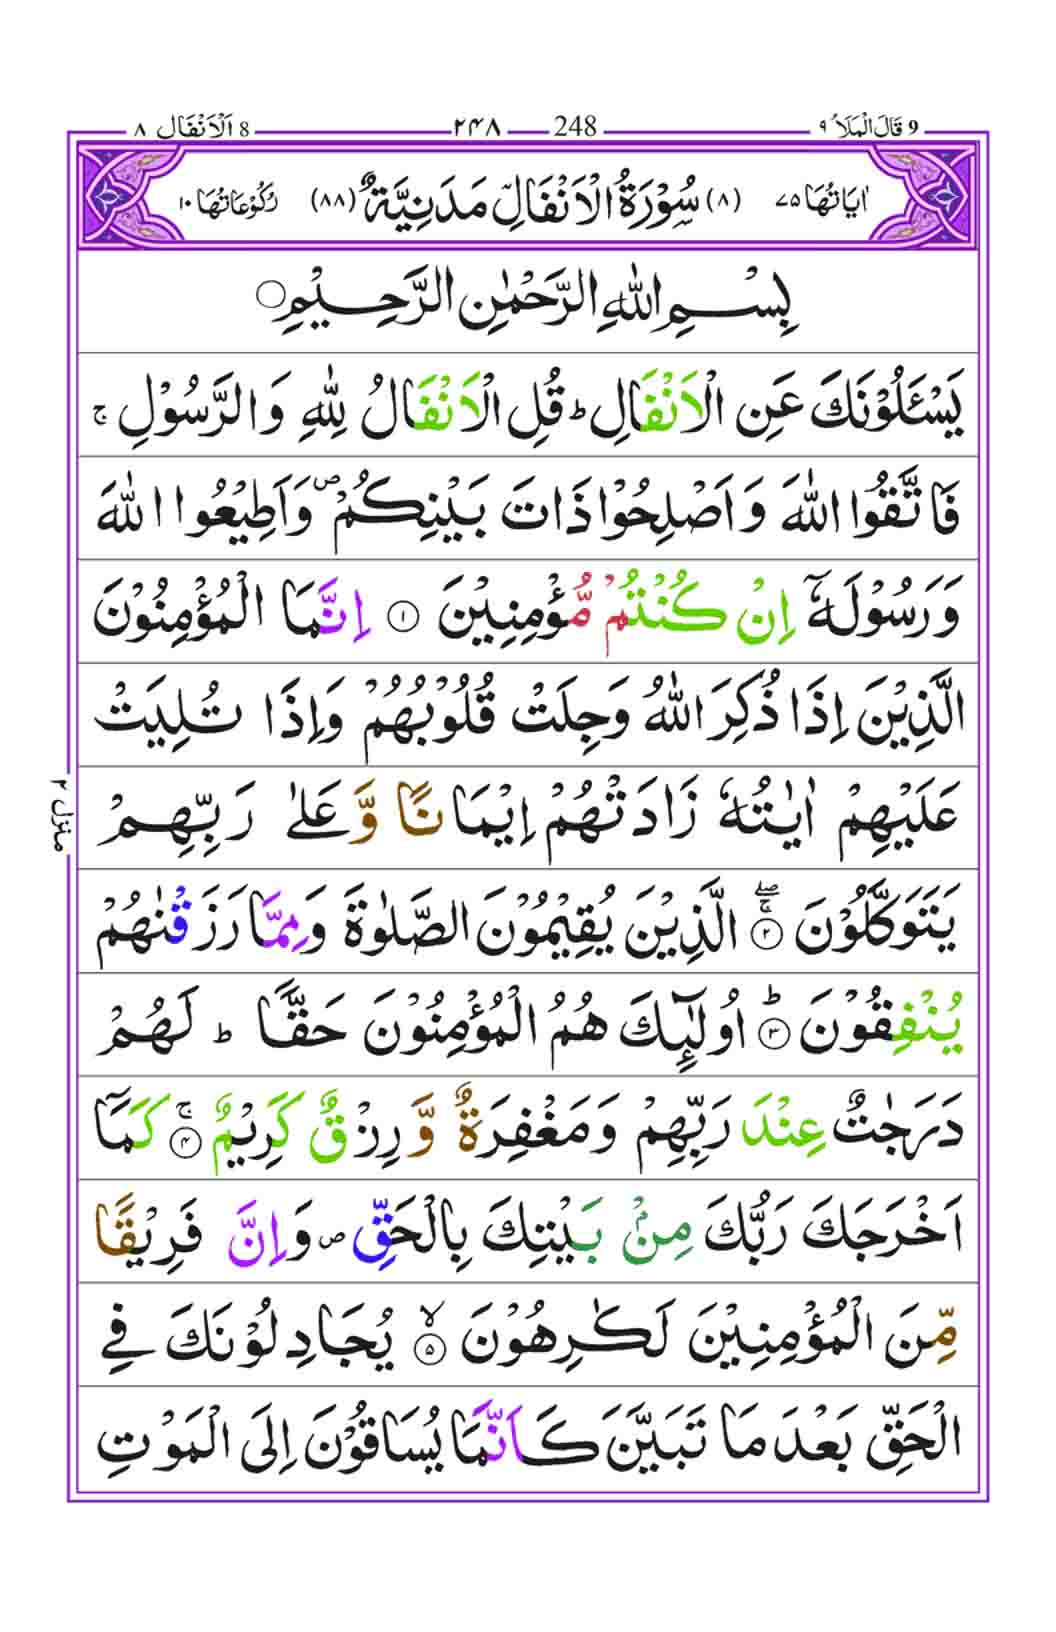 9 قَالَ الْمَلَاُ ٩ 248 ٢٤٨ 8 اَلْاَنْفَال ٨
اٰيَاتُهَا ٧٥ (٨) سُوْرَةُ الْاَنْفَالِ مَدَنِيَّةٌ (٨٨) رُكُوْعَاتُهَا ١٠
بِسْمِ اللّٰهِ الرَّحْمٰنِ الرَّحِيْمِ
يَسْـَٔلُوْنَكَ عَنِ الْاَنْفَالِ ؕ قُلِ الْاَنْفَالُ لِلّٰهِ وَالرَّسُوْلِ ۚ
فَاتَّقُوا اللّٰهَ وَاَصْلِحُوْا ذَاتَ بَيْنِكُمْ ۪ وَاَطِيْعُوا اللّٰهَ
وَرَسُوْلَهٗۤ اِنْ كُنْتُمْ مُّؤْمِنِيْنَ ١ اِنَّمَا الْمُؤْمِنُوْنَ
الَّذِيْنَ اِذَا ذُكِرَ اللّٰهُ وَجِلَتْ قُلُوْبُهُمْ وَاِذَا تُلِيَتْ
عَلَيْهِمْ اٰيٰتُهٗ زَادَتْهُمْ اِيْمَانًا وَّعَلٰى رَبِّهِمْ
يَتَوَكَّلُوْنَ ۖۚ ٢ الَّذِيْنَ يُقِيْمُوْنَ الصَّلٰوةَ وَمِمَّا رَزَقْنٰهُمْ
يُنْفِقُوْنَ ؕ ٣ اُولٰٓئِكَ هُمُ الْمُؤْمِنُوْنَ حَقًّا ؕ لَهُمْ
دَرَجٰتٌ عِنْدَ رَبِّهِمْ وَمَغْفِرَةٌ وَّرِزْقٌ كَرِيْمٌ ۚ ٤ كَمَاۤ
اَخْرَجَكَ رَبُّكَ مِنْۢ بَيْتِكَ بِالْحَقِّ ۪ وَاِنَّ فَرِيْقًا
مِّنَ الْمُؤْمِنِيْنَ لَكٰرِهُوْنَ ۙ ٥ يُجَادِلُوْنَكَ فِى
الْحَقِّ بَعْدَ مَا تَبَيَّنَ كَاَنَّمَا يُسَاقُوْنَ اِلَى الْمَوْتِ
منزل ٢